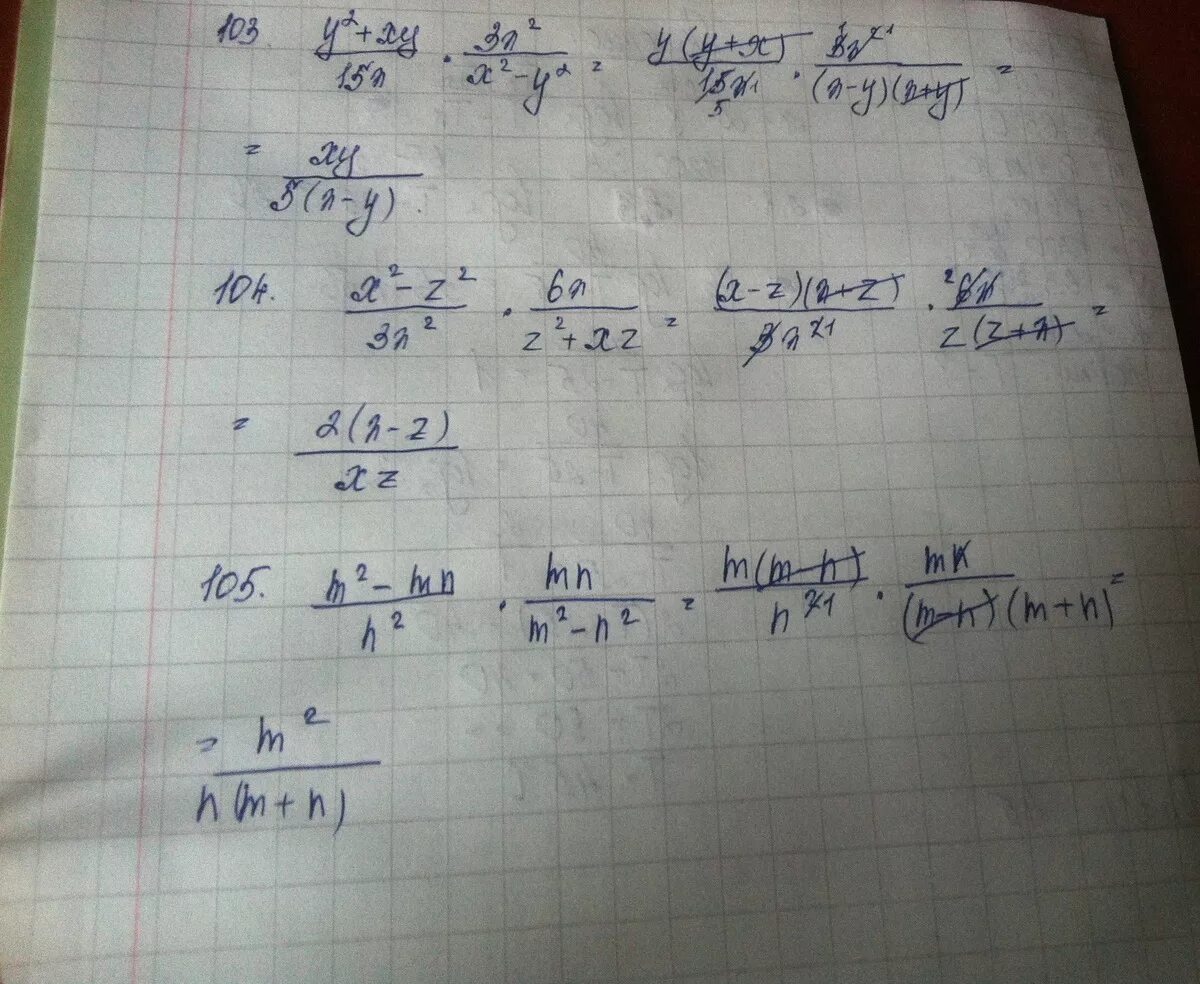 103. (y² + xy)/(15x) · (3x²)/(x² − y²) = (y(y+x))/(15x) · (3x²)/((x−y)(x+y)) =
= (xy)/(5(x−y)).
104. (x² − z²)/(3x²) · (6x)/(z² + xz) = ((x−z)(x+z))/(3x²) · (6x)/(z(z+x)) =
= (2(x−z))/(xz)
105. (m² − mn)/(n²) · (mn)/(m² − n²) = (m(m−n))/(n²) · (mn)/((m−n)(m+n)) =
= (m²)/(n(m+n))